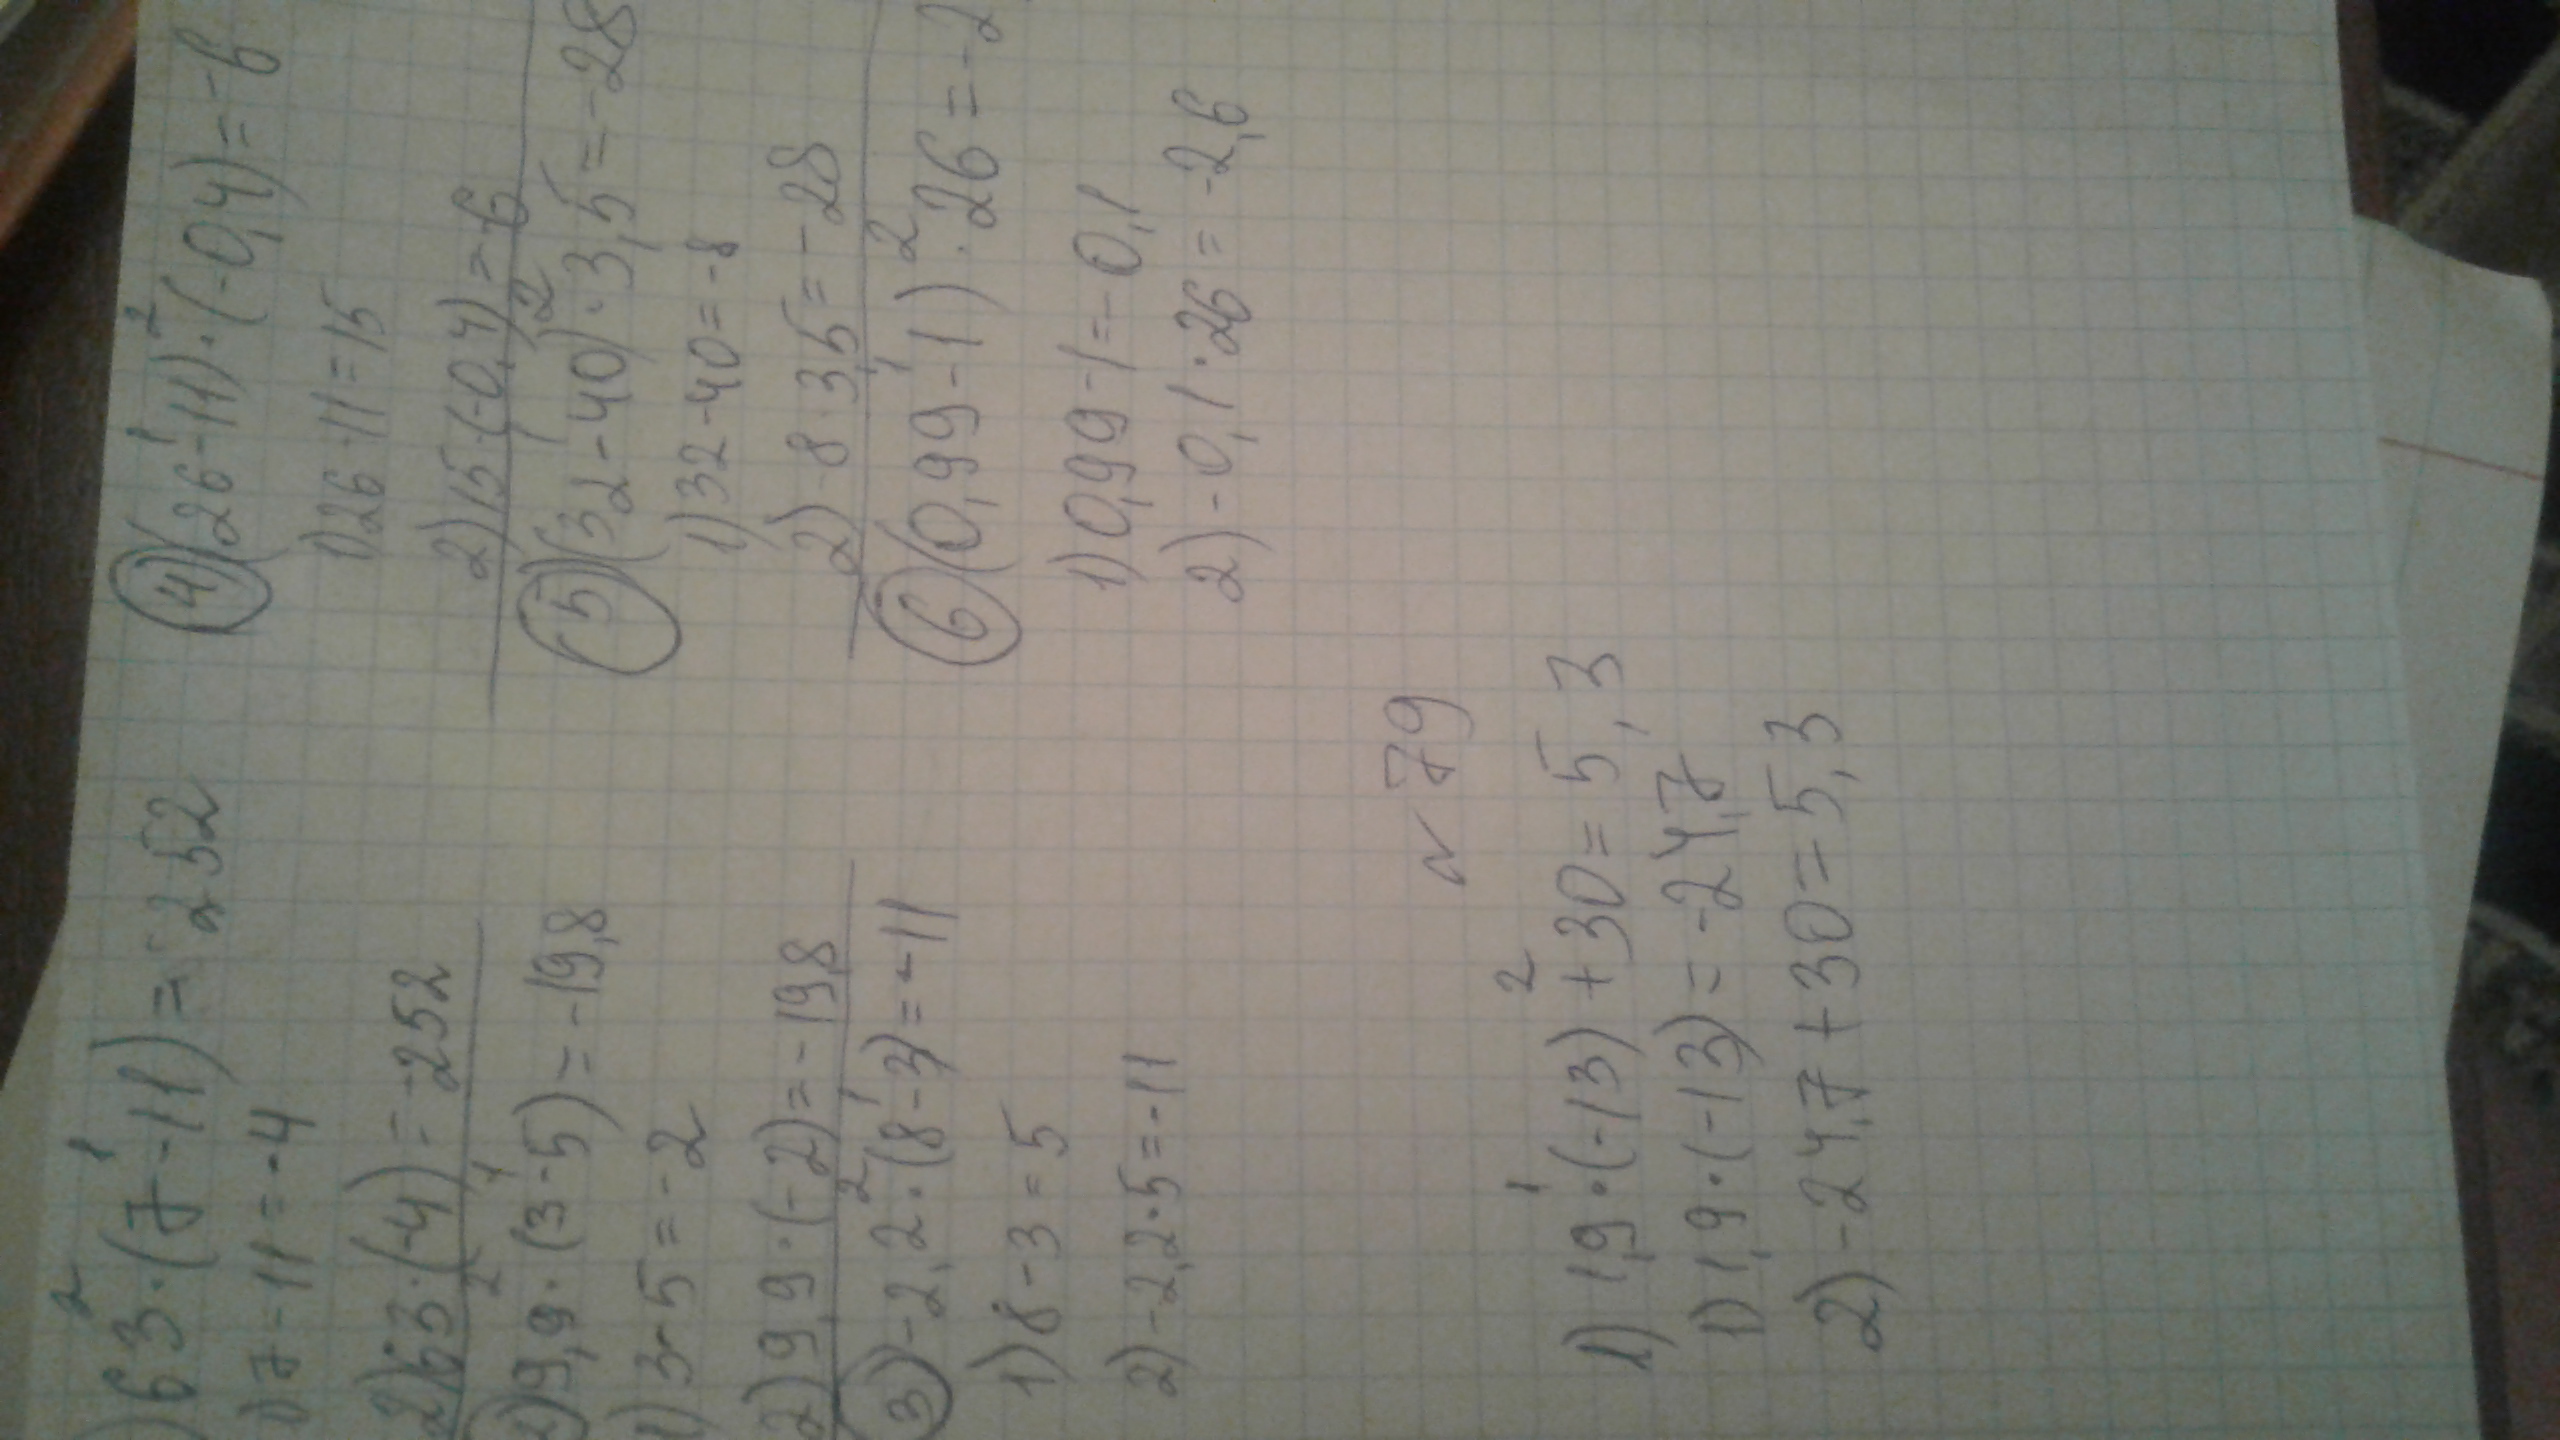 ) 63·(7-11) = -252
1) 7-11 = -4
2) 63·(-4) = -252
2) 9,9·(3-5) = -19,8
1) 3-5 = -2
2) 9,9·(-2) = -19,8
3) -2,2·(8-3) = -11
1) 8-3 = 5
2) -2,2·5 = -11
4) (26-11)·(-0,4) = -6
1) 26-11 = 15
2) 15·(-0,4) = -6
5) (32-40)·3,5 = -28
1) 32-40 = -8
2) -8·3,5 = -28
6) (0,99-1)·26 = -2
1) 0,99-1 = -0,1
2) -0,1·26 = -2,6
№79
1) 1,9·(-13)+30 = 5,3
1) 1,9·(-13) = -24,7
2) -24,7+30 = 5,3